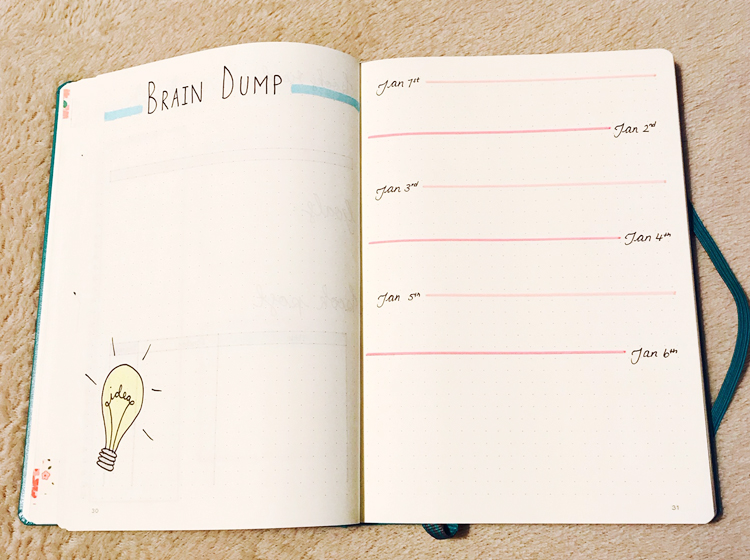 BRAIN DUMP
ideas
30
Jan 1st
Jan 2nd
Jan 3rd
Jan 4th
Jan 5th
Jan 6th
31